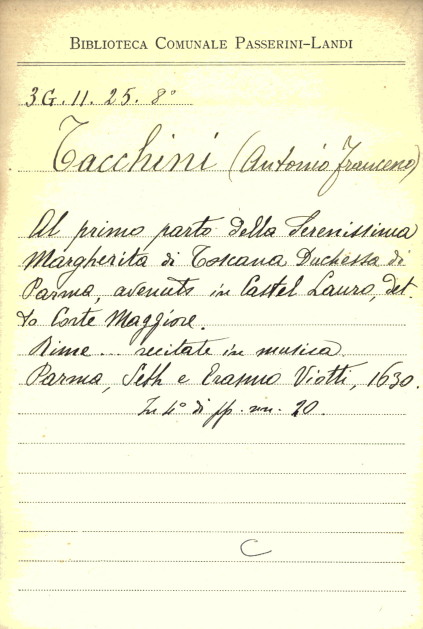 BIBLIOTECA COMUNALE PASSERINI-LANDI
3G. 11. 25. 8°
Tacchini (Antonio Franceno)
Al primo parto della Serenissima
Margherita di Toscana Duchessa di
Parma, avenuto in Castel Lauro, det
to Corte Maggiore.
Rime ... recitate in musica.
Parma, Seth e Erasmo Viotti, 1630.
In 4° di pp. nn. 20.
C